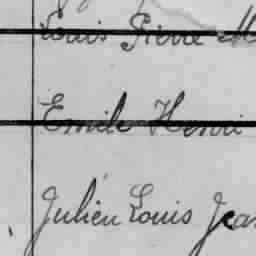 Louis Pierre M
Emile Henri
Julien Louis Jea